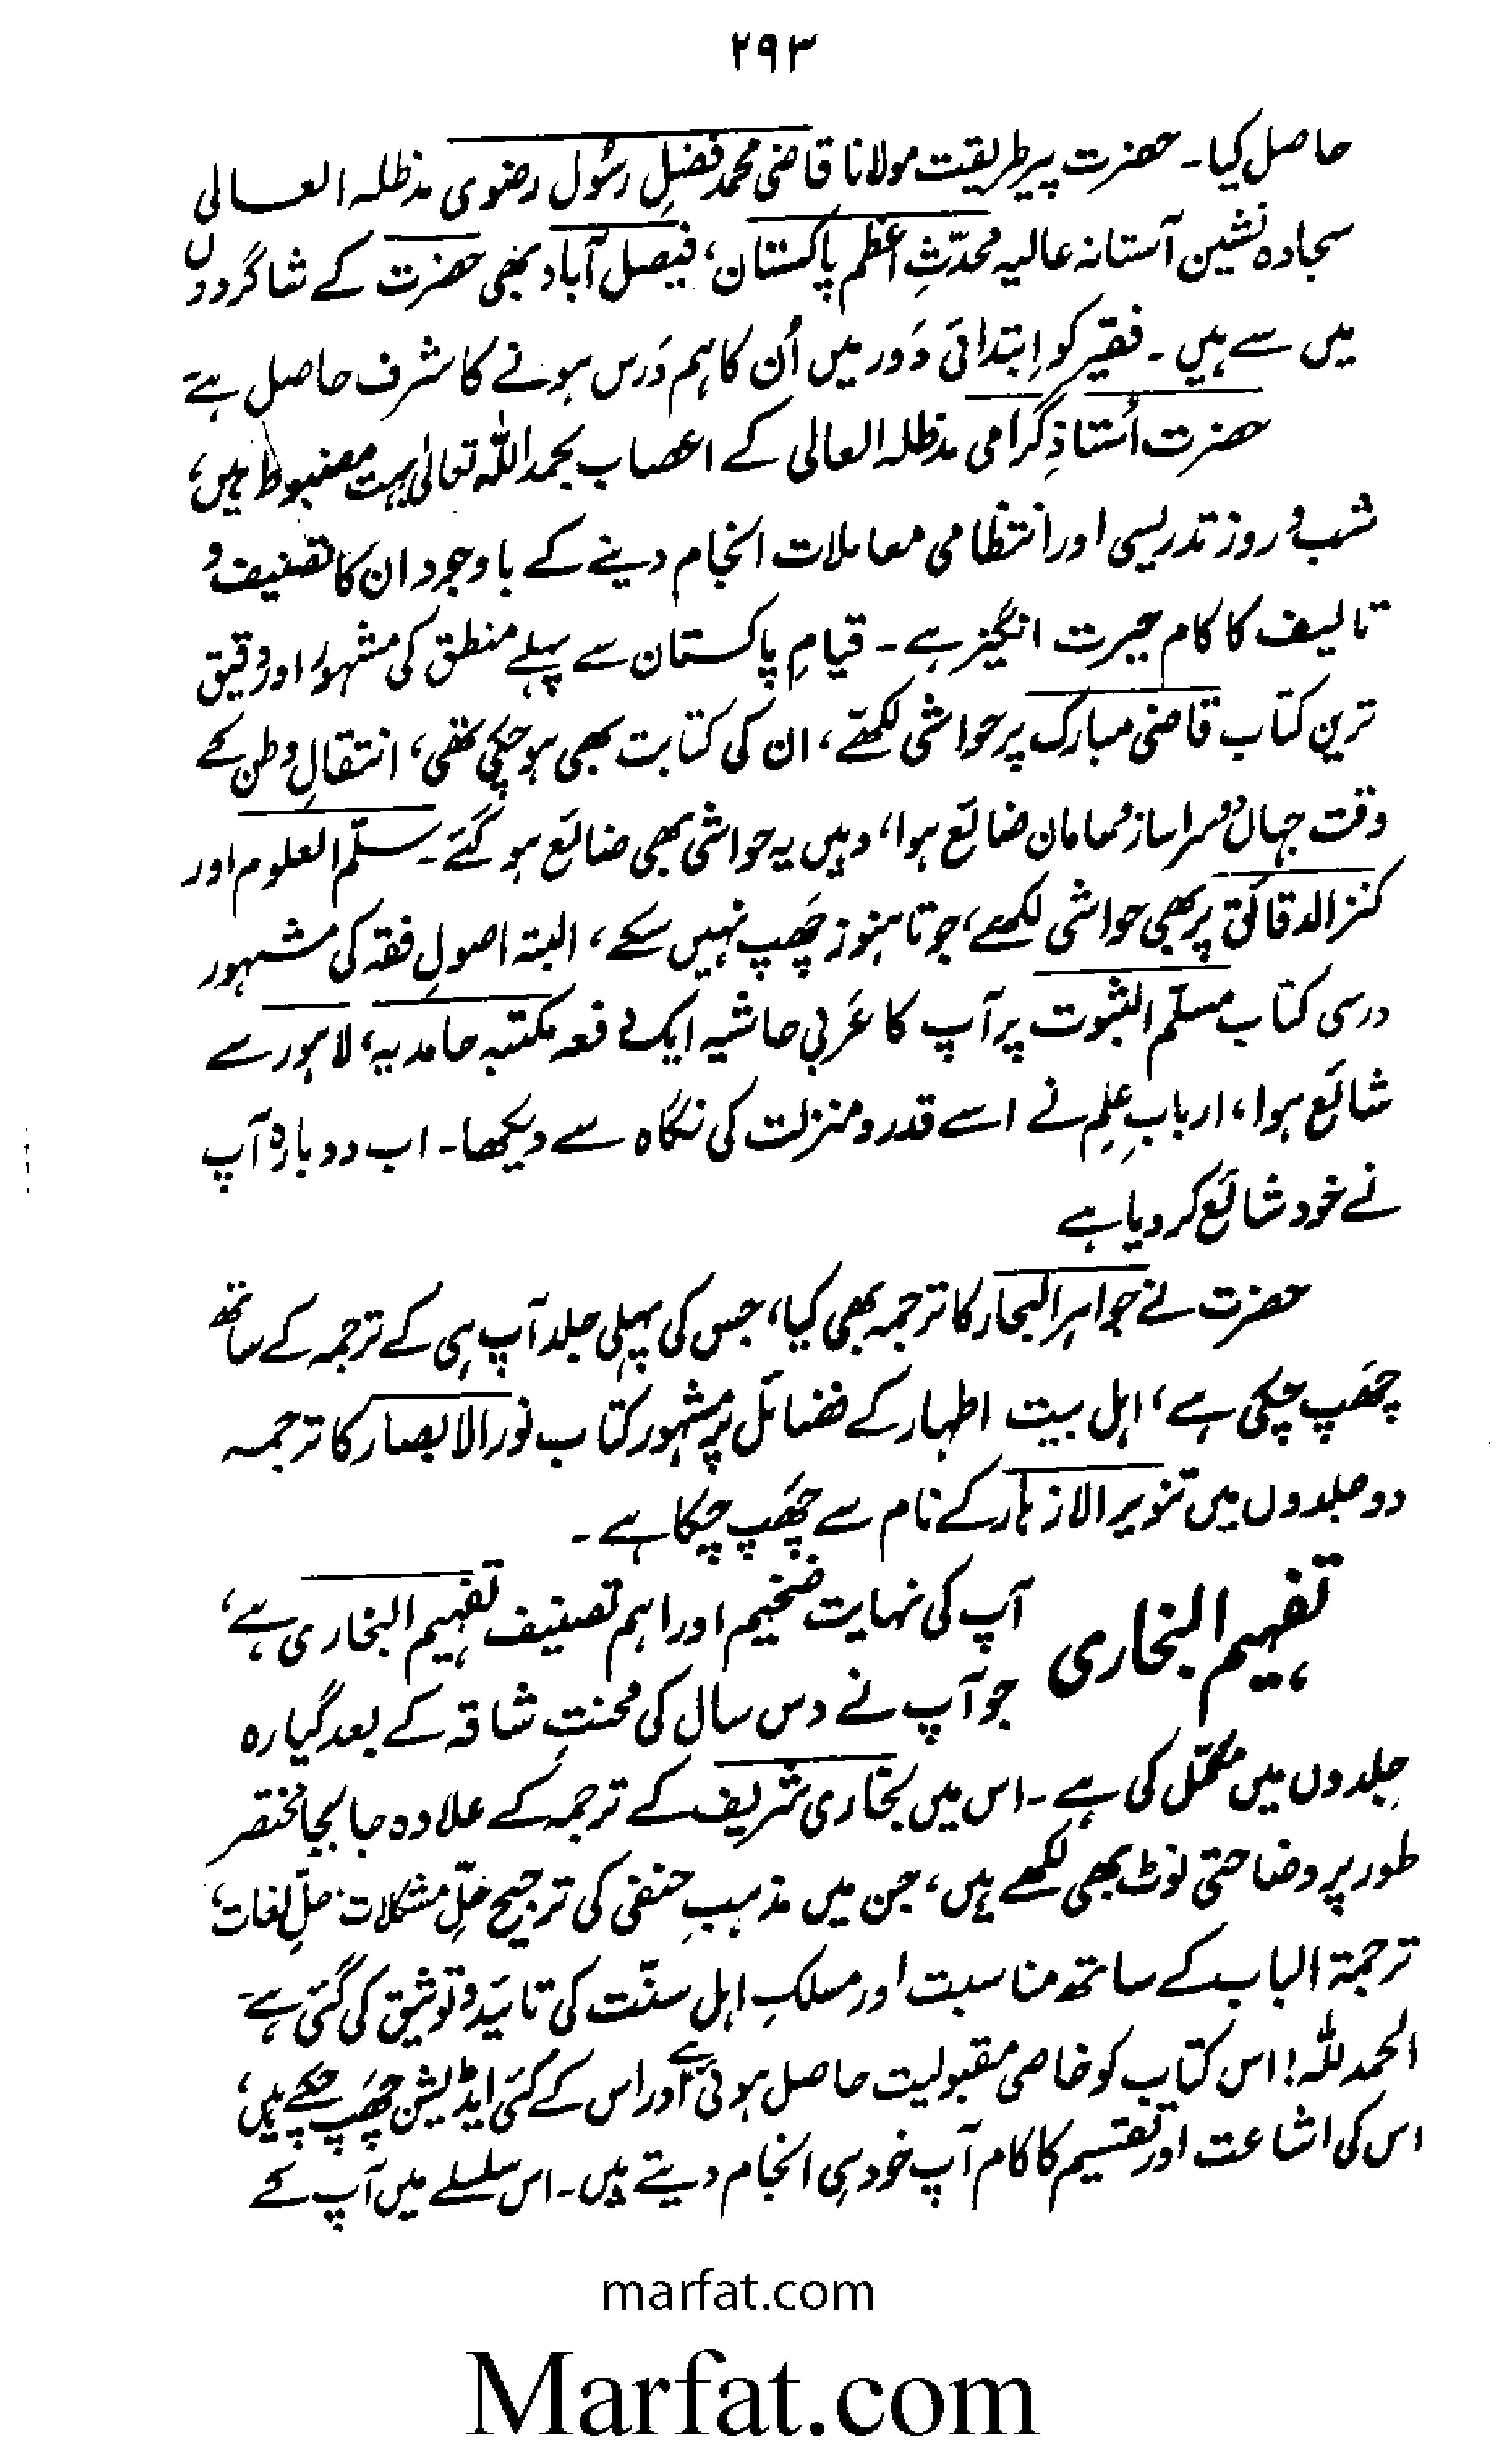 ۲۹۳
حاصل کیا۔ حضرت پیرِ طریقت مولانا قاضی محمد فضلِ رسُول رضوی مدظلہ العالی
سجادہ نشین آستانہ عالیہ محدّثِ اعظم پاکستان، فیصل آباد بھی حضرت کے شاگردوں
میں سے ہیں۔ فقیر کو اِبتدائی دَور میں اُن کا ہم دَرس ہونے کا شرف حاصل ہے
حضرت اُستاذِ گرامی مدظلہ العالی کے اعصاب بحمد اللہ تعالیٰ بہت مضبوط ہیں،
شب و روز تدریسی اور انتظامی معاملات انجام دینے کے باوجود ان کا تصنیف و
تالیف کا کام حیرت انگیز ہے۔ قیامِ پاکستان سے پہلے منطق کی مشہور اور دقیق
ترین کتاب قاضی مبارک پر حواشی لکھے، ان کی کتابت بھی ہو چکی تھی، انتقالِ وطن کے
وقت جہاں دُوسرا ساز و سامان ضائع ہوا، وہیں یہ حواشی بھی ضائع ہو گئے۔ سلّم العلوم اور
کنز الدقائق پر بھی حواشی لکھے، جو تا ہنوز چھَپ نہیں سکے، البتہ اصولِ فقہ کی مشہور
درسی کتاب مسلّم الثبوت پر آپ کا عَربی حاشیہ ایک دفعہ مکتبہ حامدیہ، لاہور سے
شائع ہوا، اربابِ عِلم نے اسے قدر و منزلت کی نگاہ سے دیکھا۔ اب دوبارہ آپ
نے خود شائع کر دیا ہے
حضرت نے جواہر البحار کا ترجمہ بھی کیا، جس کی پہلی جلد آپ ہی کے ترجمہ کے ساتھ
چھَپ چکی ہے، اہل بیت اطہار کے فضائل پر مشہور کتاب نور الابصار کا ترجمہ
دو جلدوں میں تنویر الازہار کے نام سے چھَپ چکا ہے۔
تفہیم البخاری آپ کی نہایت ضخیم اور اہم تصنیف تفہیم البخاری ہے،
جو آپ نے دس سال کی محنتِ شاقہ کے بعد گیارہ
جِلدوں میں مکمّل کی ہے۔ اس میں بخاری شریف کے ترجمہ کے علاوہ جا بجا مختصر
طور پر وضاحتی نوٹ بھی لکھے ہیں، جن میں مذہبِ حنفی کی ترجیح حلِّ مشکلات، حلِّ لغات،
ترجمۃ الباب کے ساتھ مناسبت اور مسلکِ اہل سنّت کی تائید و توثیق کی گئی ہے
الحمد للہ! اس کتاب کو خاصی مقبولیت حاصل ہوئی ہے اور اس کے کئی ایڈیشن چھَپ چکے ہیں،
اس کی اشاعت اور تقسیم کا کام آپ خود ہی انجام دیتے ہیں۔ اس سلسلے میں آپ کے
marfat.com
Marfat.com